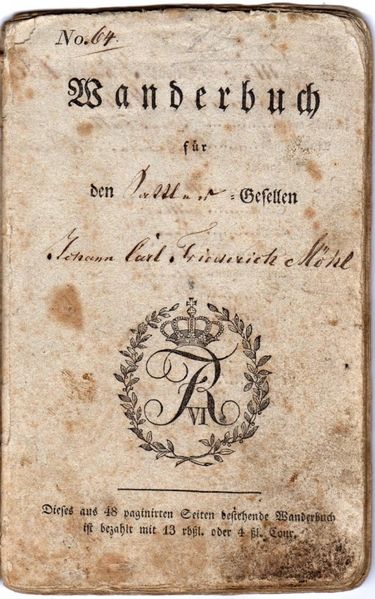 No. 64.
Wanderbuch
für
den Sattler-Gesellen
Johann Carl Friederich Möhl
FR VI
Dieses aus 48 paginirten Seiten bestehende Wanderbuch
ist bezahlt mit 13 rbßl. oder 4 ßl. Cour.